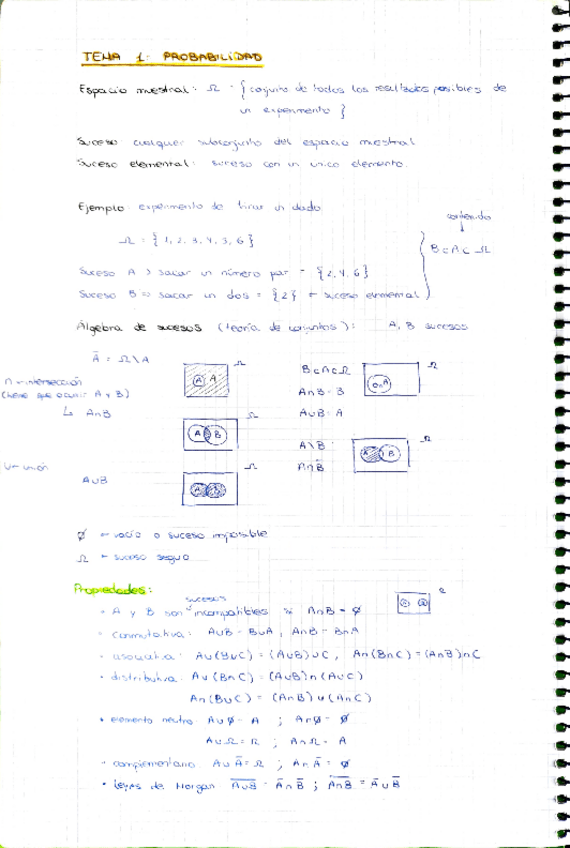 TEMA 1: PROBABILIDAD
Espacio muestral: Ω = { conjunto de todos los resultados posibles de
un experimento }
Suceso cualquier subconjunto del espacio muestral
Suceso elemental: suceso con un unico elemento
Ejemplo: experimento de tirar un dado
contenido
Ω = { 1, 2, 3, 4, 5, 6 }
B ⊂ A ⊂ Ω
Suceso A → sacar un número par = {2, 4, 6}
Suceso B => sacar un dos = {2} ← suceso elemental
Álgebra de sucesos (teoría de conjuntos): A, B sucesos
Ā = Ω \ A
A A Ω
B ⊂ A ⊂ Ω
Ω
∩ = intersección
(tiene que ocurrir A y B)
A ∩ B = B
↳ A ∩ B
A ∪ B = A
A B Ω
A \ B
A ∩ B̄
A B Ω
∪ = unión
A ∪ B
Ω
Ø ← vacío o suceso imposible
Ω ← suceso seguro
Propiedades:
sucesos
• A y B son incompatibles si A ∩ B = Ø
• conmutativa: A ∪ B = B ∪ A ; A ∩ B = B ∩ A
• asociativa: A ∪ (B ∪ C) = (A ∪ B) ∪ C , A ∩ (B ∩ C) = (A ∩ B) ∩ C
• distributiva: A ∪ (B ∩ C) = (A ∪ B) ∩ (A ∪ C)
A ∩ (B ∪ C) = (A ∩ B) ∪ (A ∩ C)
• elemento neutro: A ∪ Ø = A ; A ∩ Ø = Ø
A ∪ Ω = Ω ; A ∩ Ω = A
• complementario: A ∪ Ā = Ω ; A ∩ Ā = Ø
• leyes de Morgan: \overline{A ∪ B} = Ā ∩ B̄ ; \overline{A ∩ B} = Ā ∪ B̄